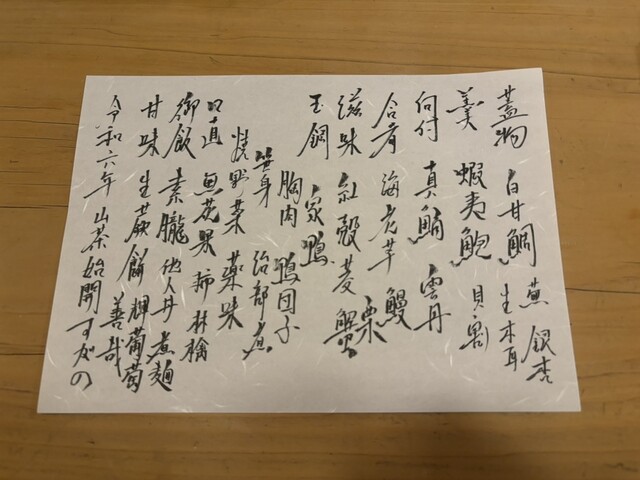 蓋物 白甘鯛 蕪 銀杏 生木耳
羹 蝦夷鮑 貝割
向付 真鯛 雲丹
合肴 海老芋 鰻 栗
滋味 紅殻菱蟹
玉鋼 家鴨
胸肉 鴨団子
笹身 治部煮
焼野菜 薬味
口直 無花果 柿 林檎
御飯 素朧 他人丼 煮麺
甘味 生蕨餅 輝葡萄
善哉
令和六年 山茶始開 すがの